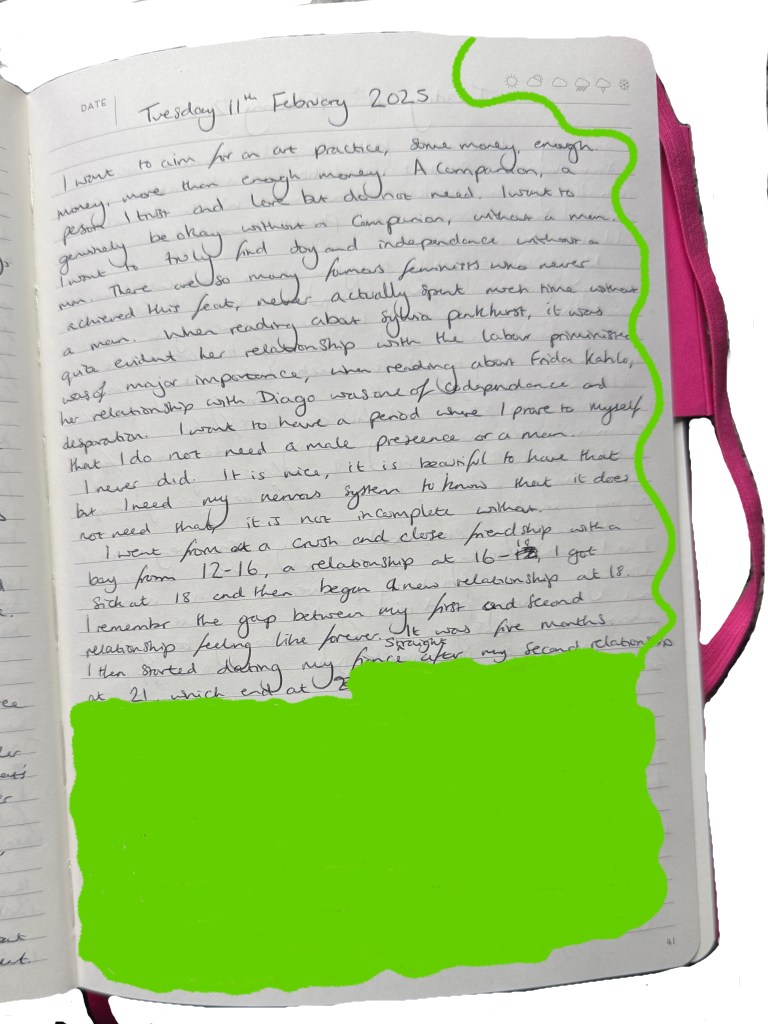 DATE
Tuesday 11th February 2025
I want to aim for an art practice, some money, enough
money, more than enough money. A companion, a
person I trust and love but do not need. I want to
genuinely be okay without a companion, without a man.
I want to truly find joy and independence without a
man. There are so many famous feminists who never
achieved this feat, never actually spent much time without
a man. When reading about Sylvia pankhurst, it was
quite evident her relationship with the labour priminister
was of major importance, when reading about Frida Kahlo,
her relationship with Diago was one of Codependance and
desparation. I want to have a period where I prove to myself
that I do not need a male presence or a man.
I never did. It is nice, it is beautiful to have that
but I need my nervous system to know that it does
not need that, it is not incomplete without.
I went from a crush and close friendship with a
boy from 12-16, a relationship at 16-18, I got
Sick at 18 and then began a new relationship at 18.
I remember the gap between my first and second
relationship feeling like forever. It was five months.
I then started dating my fiance straight after my second relationship
at 21 which end at
41